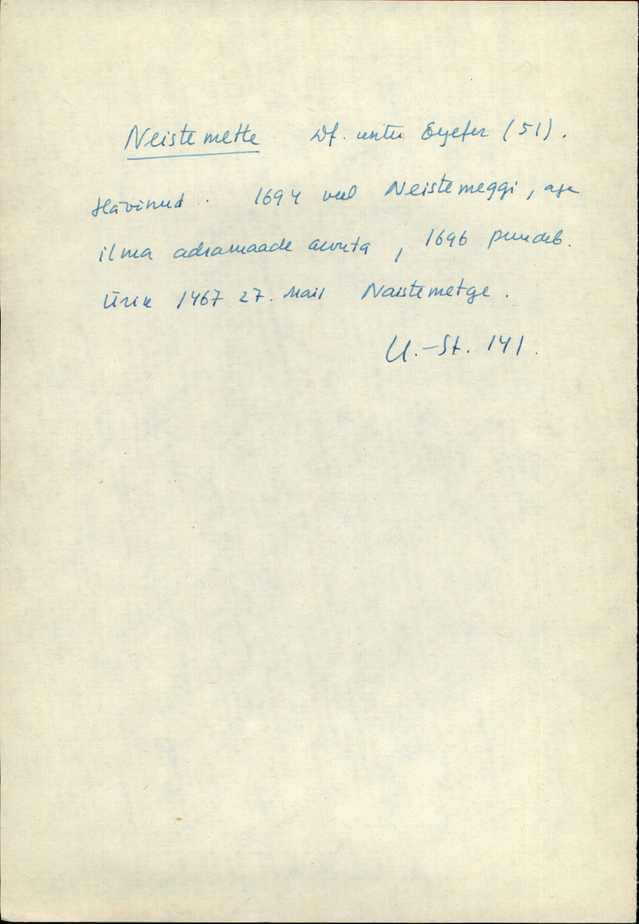 Neistemette Df. unter Eyefer (51).
Hävinud. 1694 veel Neistemeggi, aga
ilma adramaade arvuta, 1696 puudub.
Ürik 1467 27. Mail Naistemetge.
U.-St. 141.